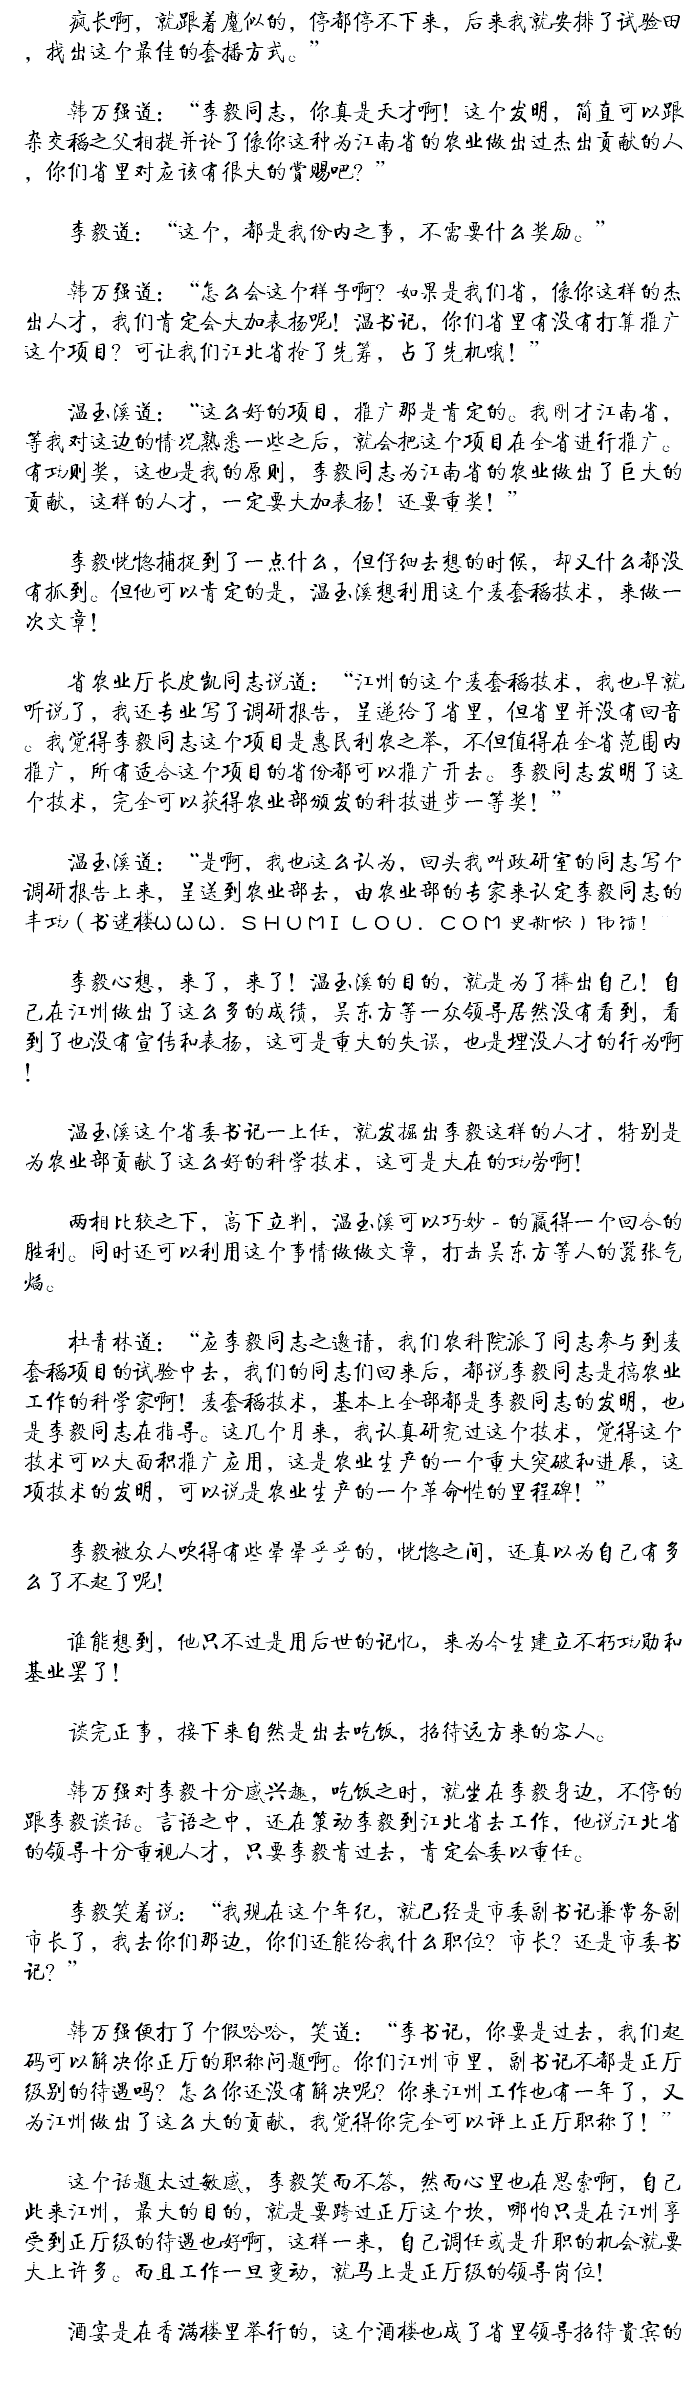 疯长啊，就跟着魔似的，停都停不下来，后来我就安排了试验田
，找出这个最佳的套播方式。”
韩万强道：“李毅同志，你真是天才啊！这个发明，简直可以跟
杂交稻之父相提并论了像你这种为江南省的农业做出过杰出贡献的人
，你们省里对应该有很大的赏赐吧？”
李毅道：“这个，都是我份内之事，不需要什么奖励。”
韩万强道：“怎么会这个样子啊？如果是我们省，像你这样的杰
出人才，我们肯定会大加表扬呢！温书记，你们省里有没有打算推广
这个项目？可让我们江北省抢了先筹，占了先机哦！”
温玉溪道：“这么好的项目，推广那是肯定的。我刚才江南省，
等我对这边的情况熟悉一些之后，就会把这个项目在全省进行推广。
有功则奖，这也是我的原则，李毅同志为江南省的农业做出了巨大的
贡献，这样的人才，一定要大加表扬！还要重奖！”
李毅恍惚捕捉到了一点什么，但仔细去想的时候，却又什么都没
有抓到。但他可以肯定的是，温玉溪想利用这个麦套稻技术，来做一
次文章！
省农业厅长皮凯同志说道：“江州的这个麦套稻技术，我也早就
听说了，我还专业写了调研报告，呈递给了省里，但省里并没有回音
。我觉得李毅同志这个项目是惠民利农之举，不但值得在全省范围内
推广，所有适合这个项目的省份都可以推广开去。李毅同志发明了这
个技术，完全可以获得农业部颁发的科技进步一等奖！”
温玉溪道：“是啊，我也这么认为，回头我叫政研室的同志写个
调研报告上来，呈送到农业部去，由农业部的专家来认定李毅同志的
丰功（书迷楼WWW．SHUMILOU．COM更新快）伟绩！”
李毅心想，来了，来了！温玉溪的目的，就是为了捧出自己！自
己在江州做出了这么多的成绩，吴东方等一众领导居然没有看到，看
到了也没有宣传和表扬，这可是重大的失误，也是埋没人才的行为啊
！
温玉溪这个省委书记一上任，就发掘出李毅这样的人才，特别是
为农业部贡献了这么好的科学技术，这可是大在的功劳啊！
两相比较之下，高下立判，温玉溪可以巧妙-的赢得一个回合的
胜利。同时还可以利用这个事情做做文章，打击吴东方等人的嚣张气
焰。
杜青林道：“应李毅同志之邀请，我们农科院派了同志参与到麦
套稻项目的试验中去，我们的同志们回来后，都说李毅同志是搞农业
工作的科学家啊！麦套稻技术，基本上全部都是李毅同志的发明，也
是李毅同志在指导。这几个月来，我认真研究过这个技术，觉得这个
技术可以大面积推广应用，这是农业生产的一个重大突破和进展，这
项技术的发明，可以说是农业生产的一个革命性的里程碑！”
李毅被众人吹得有些晕晕乎乎的，恍惚之间，还真以为自己有多
么了不起了呢！
谁能想到，他只不过是用后世的记忆，来为今生建立不朽功勋和
基业罢了！
谈完正事，接下来自然是出去吃饭，招待远方来的客人。
韩万强对李毅十分感兴趣，吃饭之时，就坐在李毅身边，不停的
跟李毅谈话。言语之中，还在策动李毅到江北省去工作，他说江北省
的领导十分重视人才，只要李毅肯过去，肯定会委以重任。
李毅笑着说：“我现在这个年纪，就已经是市委副书记兼常务副
市长了，我去你们那边，你们还能给我什么职位？市长？还是市委书
记？”
韩万强便打了个假哈哈，笑道：“李书记，你要是过去，我们起
码可以解决你正厅的职称问题啊。你们江州市里，副书记不都是正厅
级别的待遇吗？怎么你还没有解决呢？你来江州工作也有一年了，又
为江州做出了这么大的贡献，我觉得你完全可以评上正厅职称了！”
这个话题太过敏感，李毅笑而不答，然而心里也在思索啊，自己
此来江州，最大的目的，就是要跨过正厅这个坎，哪怕只是在江州享
受到正厅级的待遇也好啊，这样一来，自己调任或是升职的机会就要
大上许多。而且工作一旦变动，就马上是正厅级的领导岗位！
酒宴是在香满楼里举行的，这个酒楼也成了省里领导招待贵宾的